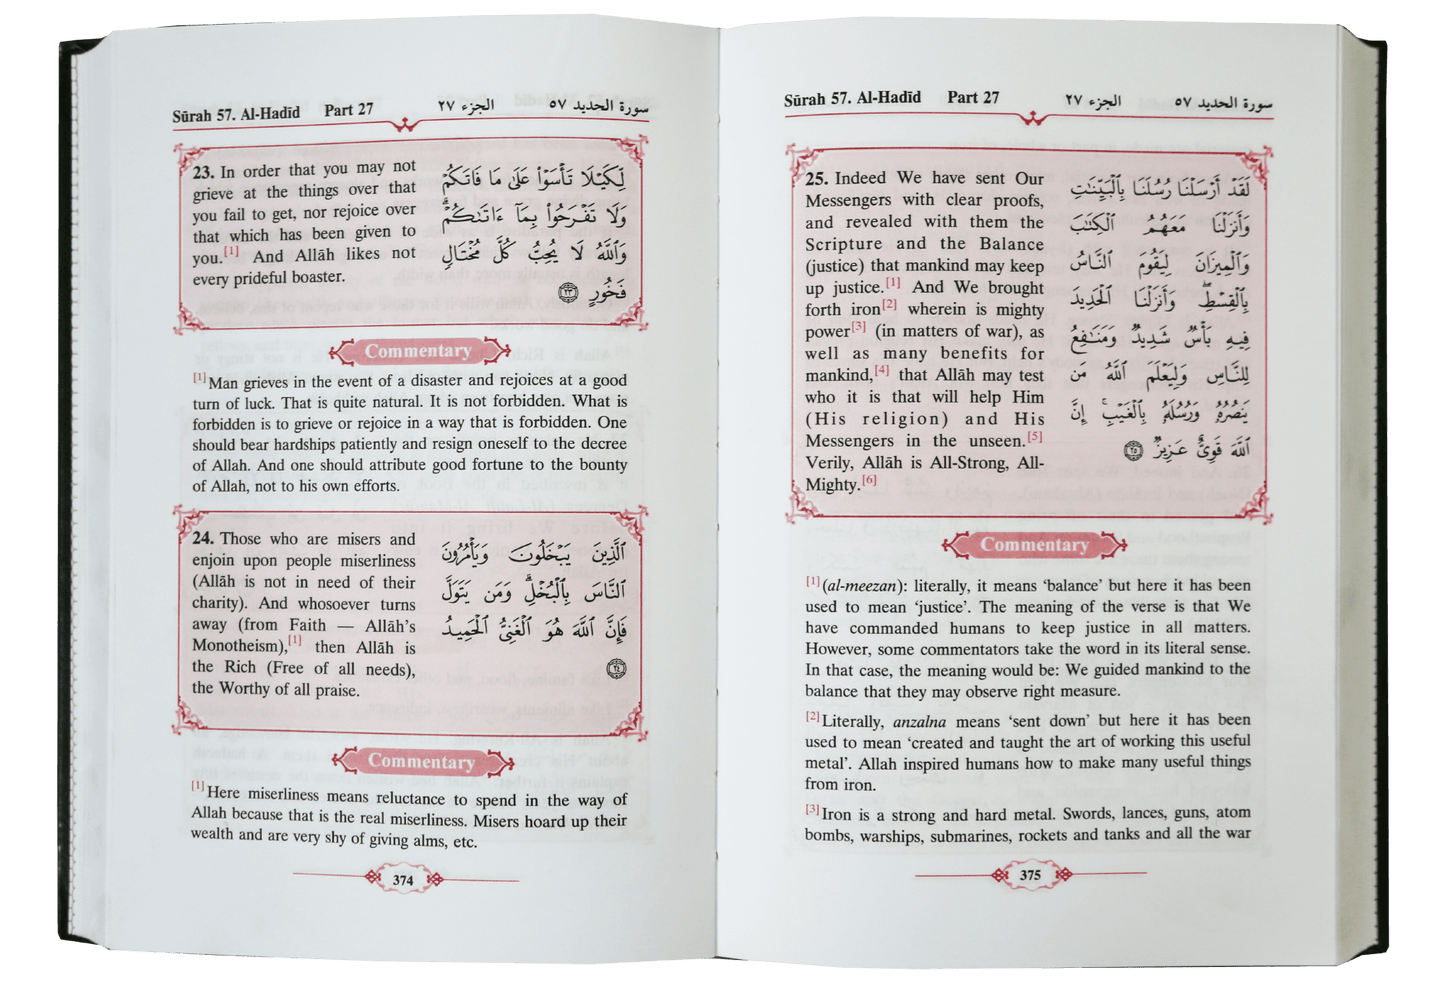 Sūrah 57. Al-Hadīd Part 27 الجزء ٢٧ سورة الحديد ٥٧
23. In order that you may not
grieve at the things over that
you fail to get, nor rejoice over
that which has been given to
you.[1] And Allāh likes not
every prideful boaster.
لِّكَيْلَا تَأْسَوْا۟ عَلَىٰ مَا فَاتَكُمْ
وَلَا تَفْرَحُوا۟ بِمَآ ءَاتَىٰكُمْ ۗ
وَٱللَّهُ لَا يُحِبُّ كُلَّ مُخْتَالٍ
فَخُورٍ ٢٣
Commentary
[1]Man grieves in the event of a disaster and rejoices at a good
turn of luck. That is quite natural. It is not forbidden. What is
forbidden is to grieve or rejoice in a way that is forbidden. One
should bear hardships patiently and resign oneself to the decree
of Allah. And one should attribute good fortune to the bounty
of Allah, not to his own efforts.
24. Those who are misers and
enjoin upon people miserliness
(Allāh is not in need of their
charity). And whosoever turns
away (from Faith — Allāh's
Monotheism),[1] then Allāh is
the Rich (Free of all needs),
the Worthy of all praise.
ٱلَّذِينَ يَبْخَلُونَ وَيَأْمُرُونَ
ٱلنَّاسَ بِٱلْبُخْلِ ۗ وَمَن يَتَوَلَّ
فَإِنَّ ٱللَّهَ هُوَ ٱلْغَنِىُّ ٱلْحَمِيدُ
٢٤
Commentary
[1]Here miserliness means reluctance to spend in the way of
Allah because that is the real miserliness. Misers hoard up their
wealth and are very shy of giving alms, etc.
374
Sūrah 57. Al-Hadīd Part 27 الجزء ٢٧ سورة الحديد ٥٧
25. Indeed We have sent Our
Messengers with clear proofs,
and revealed with them the
Scripture and the Balance
(justice) that mankind may keep
up justice.[1] And We brought
forth iron[2] wherein is mighty
power[3] (in matters of war), as
well as many benefits for
mankind,[4] that Allāh may test
who it is that will help Him
(His religion) and His
Messengers in the unseen.[5]
Verily, Allāh is All-Strong, All-
Mighty.[6]
لَقَدْ أَرْسَلْنَا رُسُلَنَا بِٱلْبَيِّنَٰتِ
وَأَنزَلْنَا مَعَهُمُ ٱلْكِتَٰبَ
وَٱلْمِيزَانَ لِيَقُومَ ٱلنَّاسُ
بِٱلْقِسْطِ ۖ وَأَنزَلْنَا ٱلْحَدِيدَ
فِيهِ بَأْسٌ شَدِيدٌ وَمَنَٰفِعُ
لِلنَّاسِ وَلِيَعْلَمَ ٱللَّهُ مَن
يَنصُرُهُۥ وَرُسُلَهُۥ بِٱلْغَيْبِ ۚ إِنَّ
ٱللَّهَ قَوِىٌّ عَزِيزٌ ٢٥
Commentary
[1](al-meezan): literally, it means ‘balance’ but here it has been
used to mean ‘justice’. The meaning of the verse is that We
have commanded humans to keep justice in all matters.
However, some commentators take the word in its literal sense.
In that case, the meaning would be: We guided mankind to the
balance that they may observe right measure.
[2]Literally, anzalna means ‘sent down’ but here it has been
used to mean ‘created and taught the art of working this useful
metal’. Allah inspired humans how to make many useful things
from iron.
[3]Iron is a strong and hard metal. Swords, lances, guns, atom
bombs, warships, submarines, rockets and tanks and all the war
375